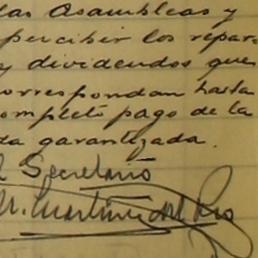 las Asambleas y
percibir los repar
y dividendos que
correspondan hasta
completo pago de la
da garantizada.
l Secretario
M. Martinez del Rio